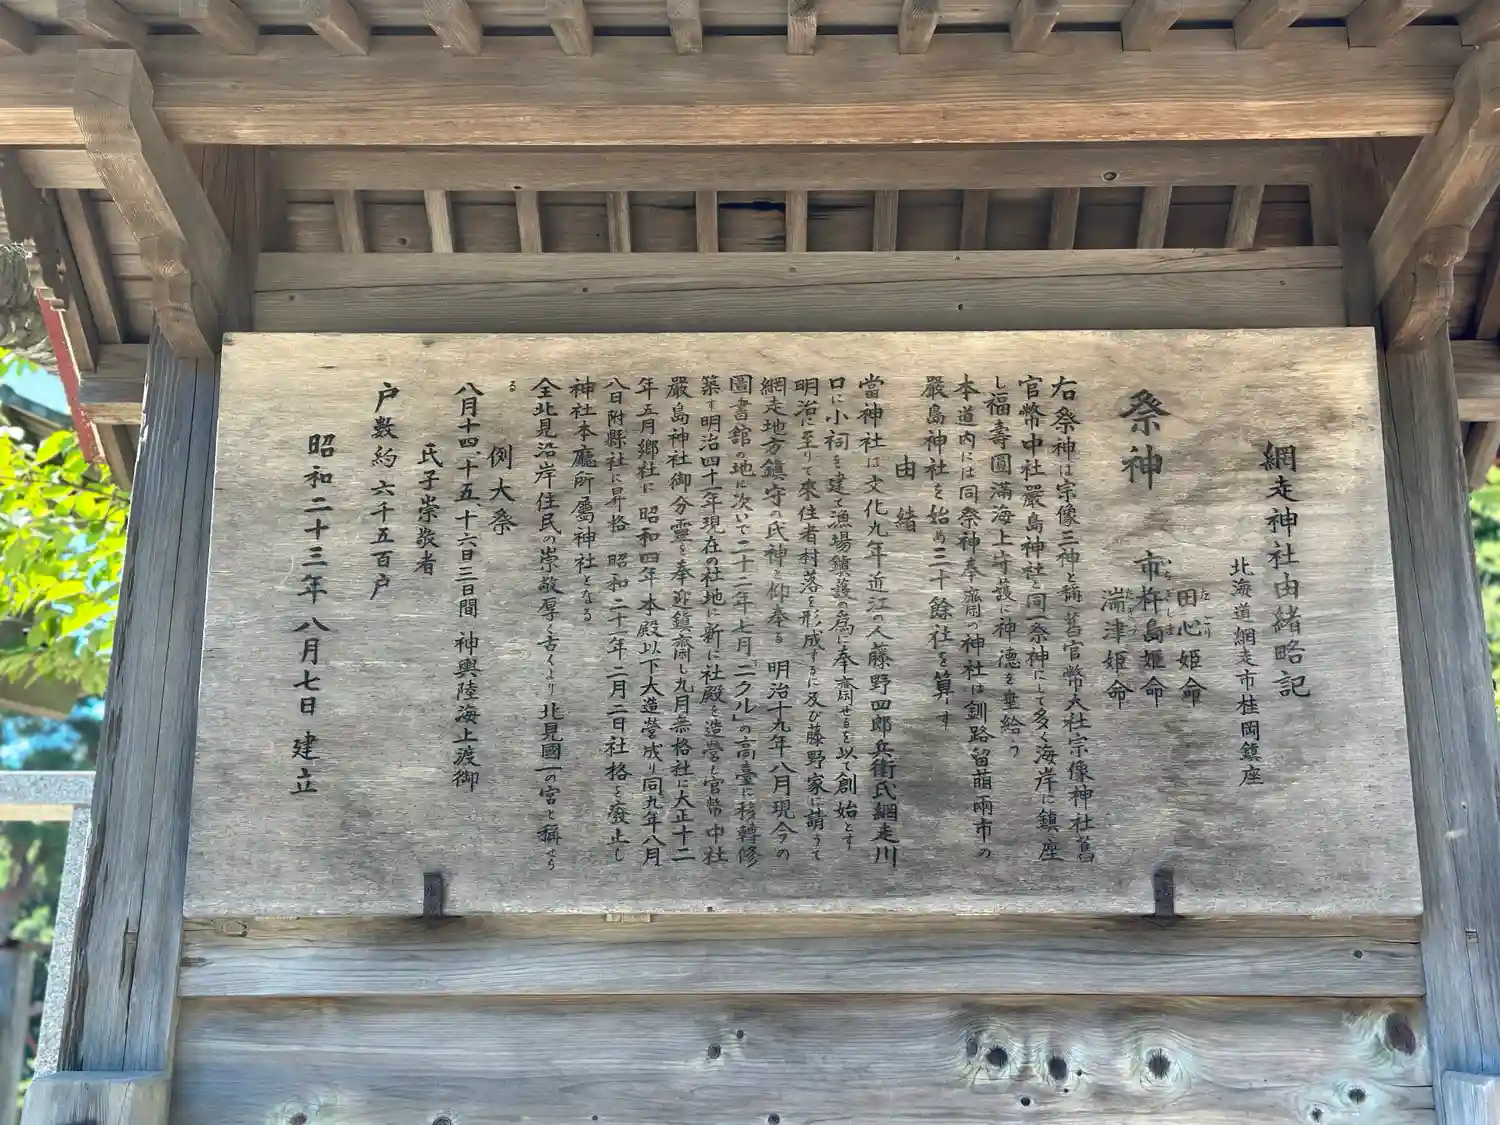 網走神社由緒略記
北海道網走市桂岡鎮座
祭神
田心姫命
市杵島姫命
湍津姫命
右祭神は宗像三神と稱へ舊官幣大社宗像神社舊
官幣中社嚴島神社と同一祭神にして多く海岸に鎮座
し福壽圓滿海上守護に神徳を垂給ふ
本道内には同祭神奉齋の神社は釧路留萠兩市の
嚴島神社を始め三十餘社を算す
由緒
當神社は文化九年近江の人藤野四郎兵衛氏網走川
口に小祠を建て漁場鎮護の為に奉齋せるを以て創始とす
明治に至りて來住者村落を形成するに及び藤野家に請うて
網走地方鎮守の氏神と仰奉る 明治十九年八月現今の
圖書舘の地に次いで二十二年七月「ニクル」の高臺に移轉修
築す明治四十年現在の社地に新に社殿を造營し官幣中社
嚴島神社御分靈を奉迎鎮齋し九月無格社に大正十二
年五月郷社に 昭和四年本殿以下大造營成り同九年八月
八日附縣社に昇格 昭和二十一年二月二日社格を廢止し
神社本廳所屬神社となる
全北見沿岸住民の崇敬厚く古くより北見國一の宮と稱せら
る
例大祭
八月十四、十五、十六日三日間 神輿陸海上渡御
氏子崇敬者
户數約六千五百户
昭和二十三年八月七日 建立